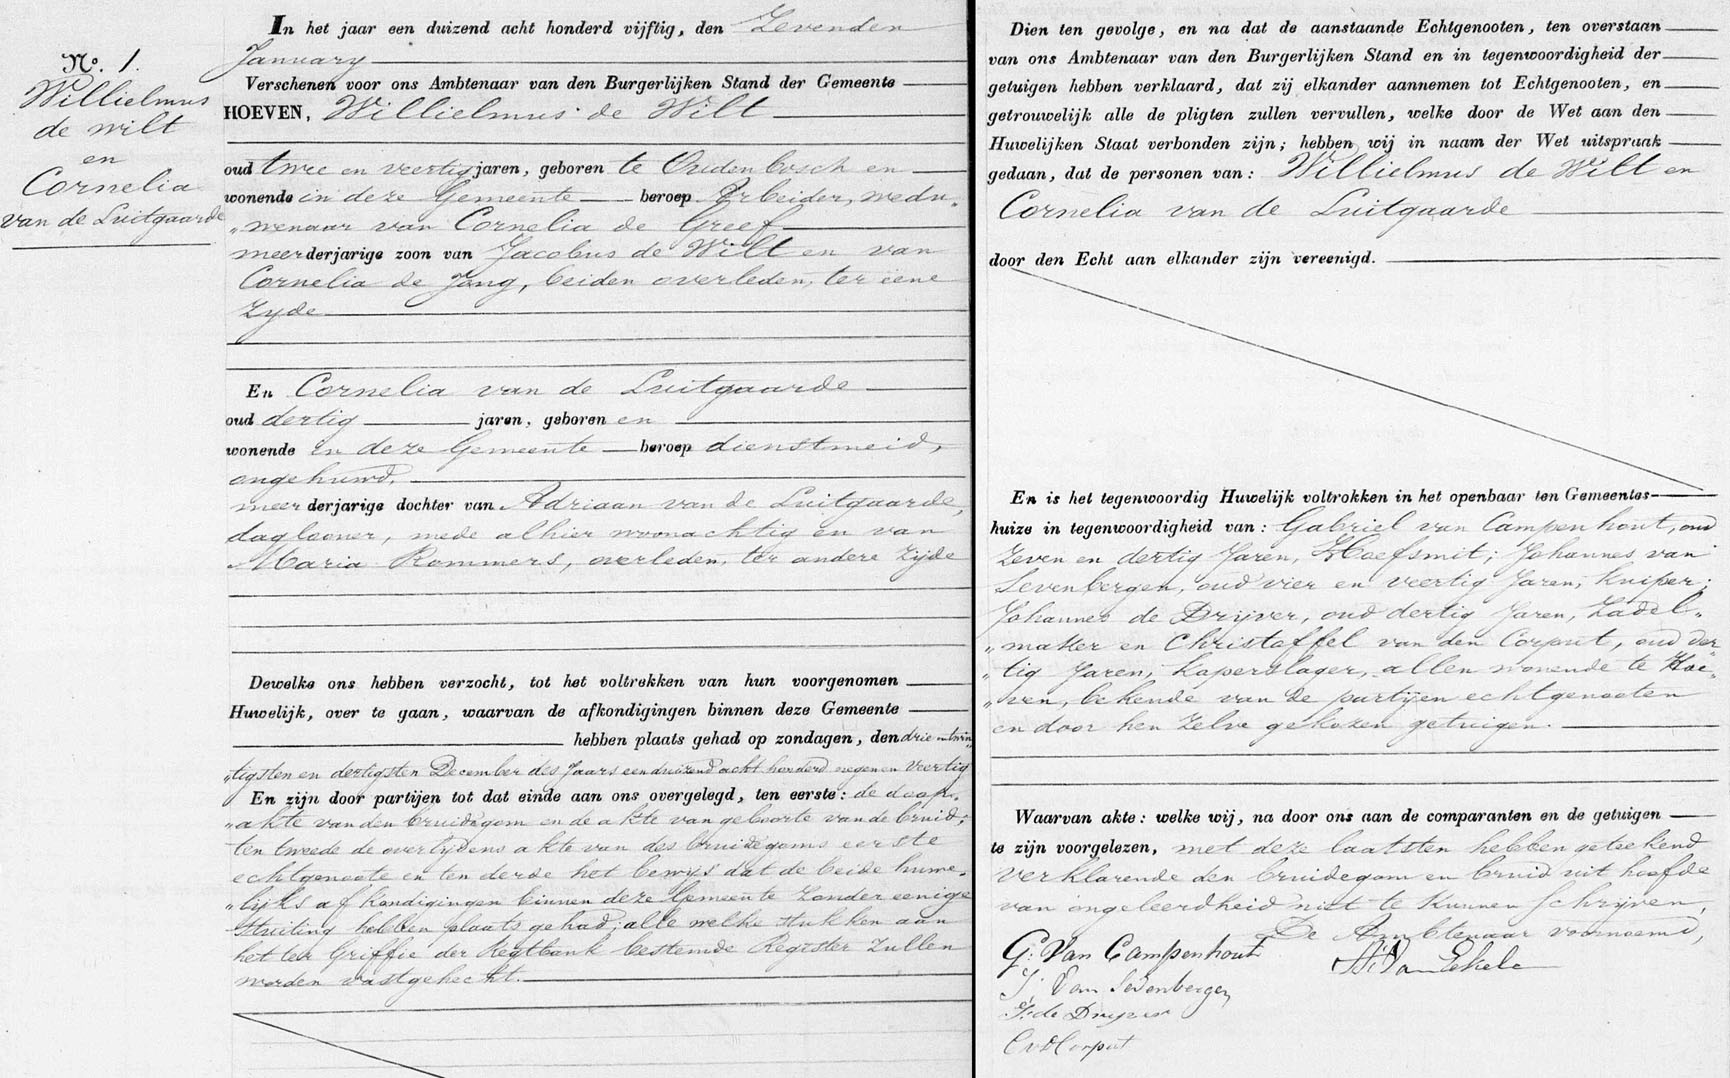 No. 1.
Willielmus
de Wilt
en
Cornelia
van de Luitgaarde
In het jaar een duizend acht honderd vijftig, den Zevenden
January
Verschenen voor ons Ambtenaar van den Burgerlijken Stand der Gemeente
HOEVEN, Willielmus de Wilt
oud twee en veertig jaren, geboren te Oudenbosch en
wonende in deze Gemeente beroep Arbeider, wedu„
„wenaar van Cornelia de Greef
meerderjarige zoon van Jacobus de Wilt en van
Cornelia de Jong, beiden overleden, ter eene
Zyde
En Cornelia van de Luitgaarde
oud dertig jaren, geboren en
wonende in deze Gemeente beroep dienstmeid,
ongehuwd,
meerderjarige dochter van Adriaan van de Luitgaarde,
daglooner, mede alhier woonachtig en van
Maria Rommers, overleden, ter andere Zijde
Dewelke ons hebben verzocht, tot het voltrekken van hun voorgenomen
Huwelijk, over te gaan, waarvan de afkondigingen binnen deze Gemeente
hebben plaats gehad op zondagen, den drie en twin„
„tigsten en dertigsten December des Jaars een duizend acht honderd negen en veertig
En zijn door partijen tot dat einde aan ons overgelegd, ten eerste: de doop„
„akte van den bruidegom en de akte van geboorte van de bruid;
ten tweede de overlijdens akte van des bruidegoms eerste
echtgenoote en ten derde het bewijs dat de beide huwe„
„lijks afkondigingen binnen deze Gemeente Zonder eenige
stuiting hebben plaats gehad; alle welke stukken aan
het ter Griffie der Regtbank bestemde Register Zullen
worden vastgehecht.
Dien ten gevolge, en na dat de aanstaande Echtgenooten, ten overstaan
van ons Ambtenaar van den Burgerlijken Stand en in tegenwoordigheid der
getuigen hebben verklaard, dat zij elkander aannemen tot Echtgenooten, en
getrouwelijk alle de pligten zullen vervullen, welke door de Wet aan den
Huwelijken Staat verbonden zijn; hebben wij in naam der Wet uitspraak
gedaan, dat de personen van: Willielmus de Wilt en
Cornelia van de Luitgaarde
door den Echt aan elkander zijn vereenigd.
En is het tegenwoordig Huwelijk voltrokken in het openbaar ten Gemeentes-
huize in tegenwoordigheid van: Gabriel van Campenhout, oud
Zeven en dertig Jaren, Hoefsmit; Johannes van
Sevenbergen, oud vier en veertig Jaren, kuiper;
Johannes de Drijver, oud dertig Jaren, Zadel„
„maker en Christoffel van den Corput, oud der„
„tig Jaren, koperslager, allen wonende te Hoe„
„ven, bekende van de partijen echtgenooten
en door hen Zelve gekozen getuigen.
Waarvan akte: welke wij, na door ons aan de comparanten en de getuigen
te zijn voorgelezen, met deze laatsten hebben geteekend
verklarende den bruidegom en bruid uit hoofde
van ongeleerdheid niet te kunnen schrijven,
De Ambtenaar voornoemd,
G. Van Campenhout
J. Van Sevenbergen
J: de Drijver
C vd Corput